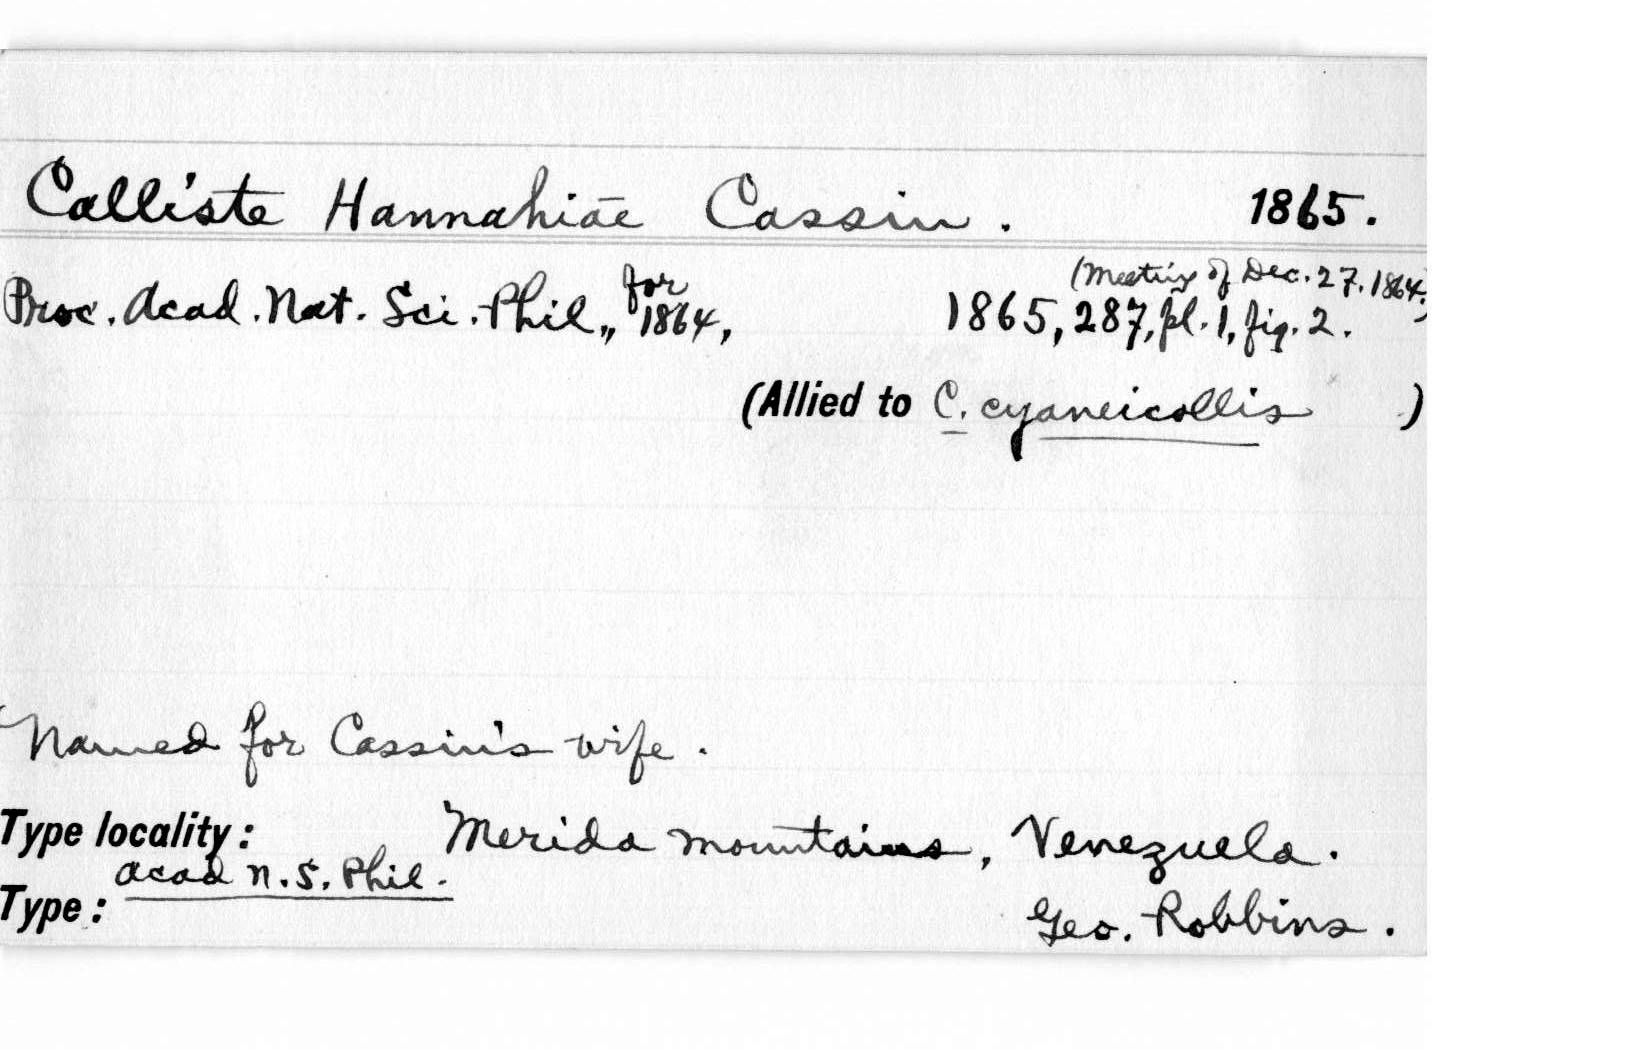 Calliste Hannahiae Cassin. 1865.
(Meeting of Dec. 27, 1864.)
Proc. Acad. Nat. Sci. Phil., for 1864, 1865, 287, pl. 1, fig. 2.
(Allied to C. cyaneicollis )
Named for Cassin's wife.
Type locality: Merida mountains, Venezuela.
Acad N. S. Phil.
Type: Geo. Robbins.